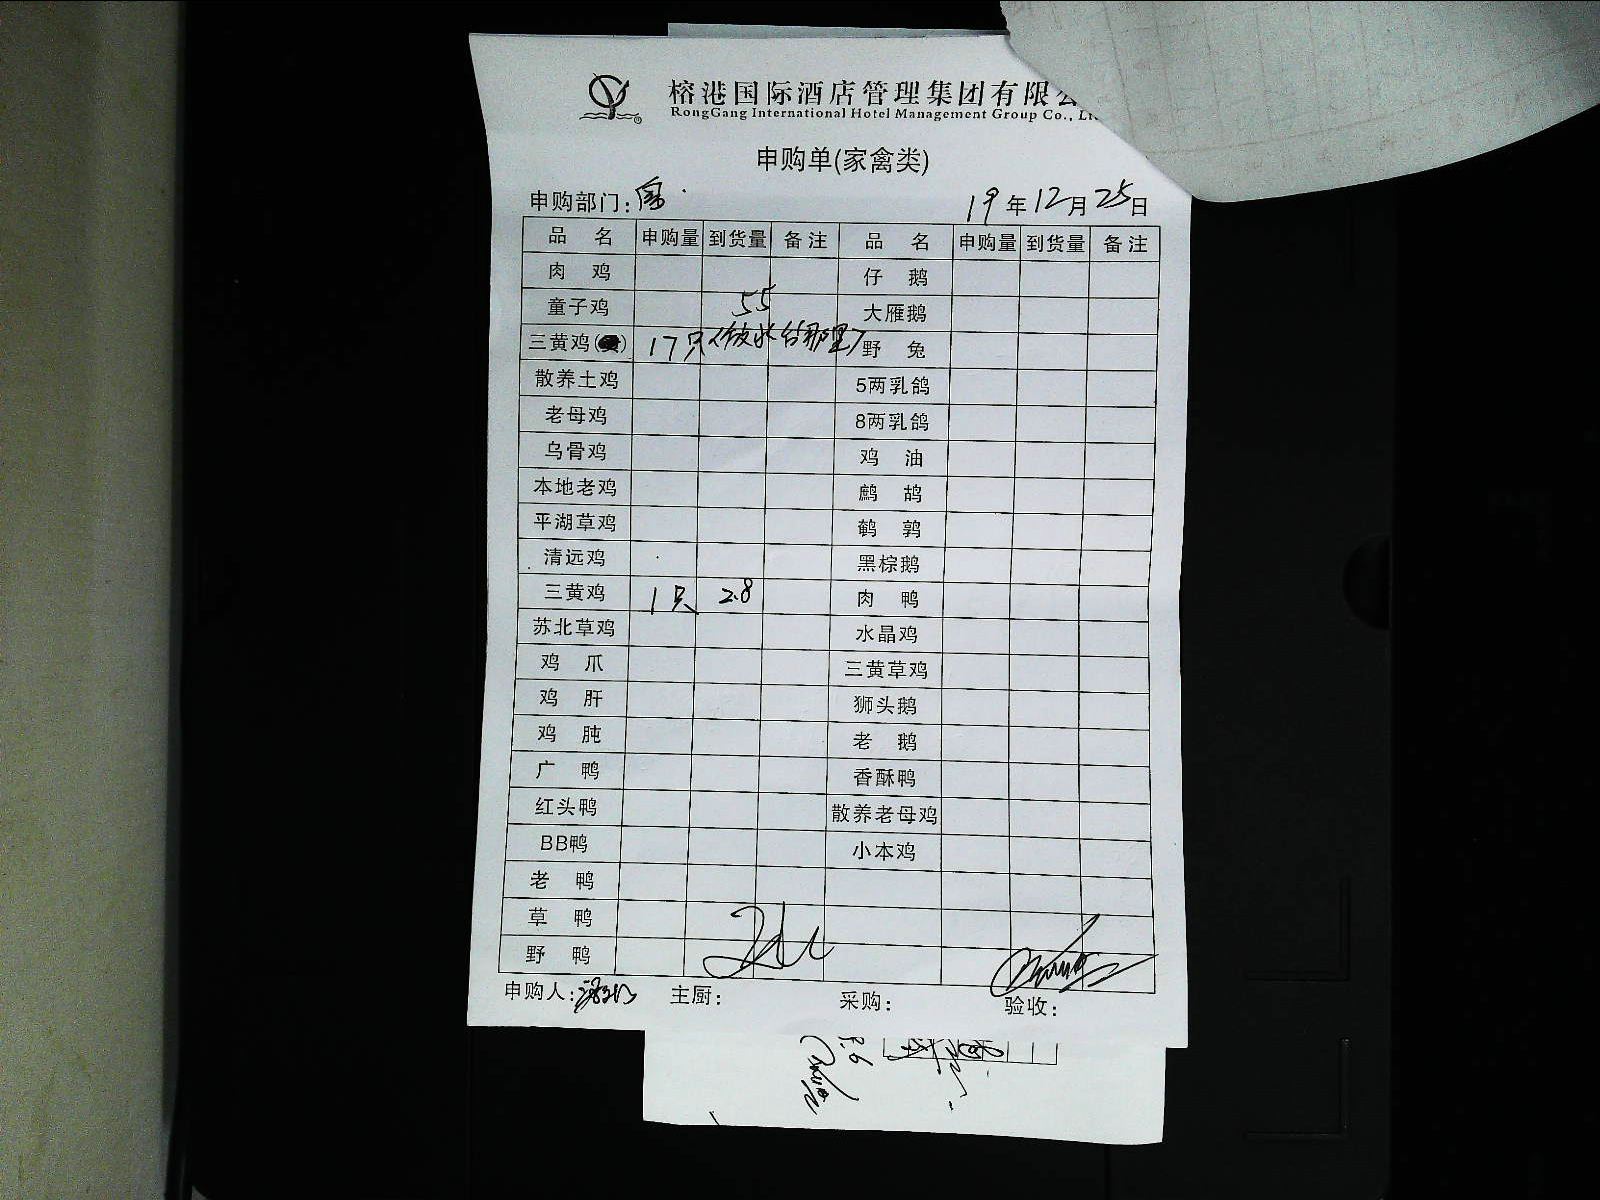 榕港国际酒店管理集团有限
RongGang International Hotel Management Group Co.,
申购单(家禽类)
申购部门:
19年12月25日
品 名 申购量 到货量 备注 品 名 申购量 到货量 备注
肉 鸡 仔 鹅
童子鸡 55 大雁鹅
三黄鸡( ) 17只 野 兔
散养土鸡 5两乳鸽
老母鸡 8两乳鸽
乌骨鸡 鸡 油
本地老鸡 鹧 鸪
平湖草鸡 鹌 鹑
清远鸡 黑棕鹅
三黄鸡 1只 2.8 肉 鸭
苏北草鸡 水晶鸡
鸡 爪 三黄草鸡
鸡 肝 狮头鹅
鸡 肫 老 鹅
广 鸭 香酥鸭
红头鸭 散养老母鸡
BB鸭 小本鸡
老 鸭
草 鸭
野 鸭
申购人: 主厨: 采购: 验收: